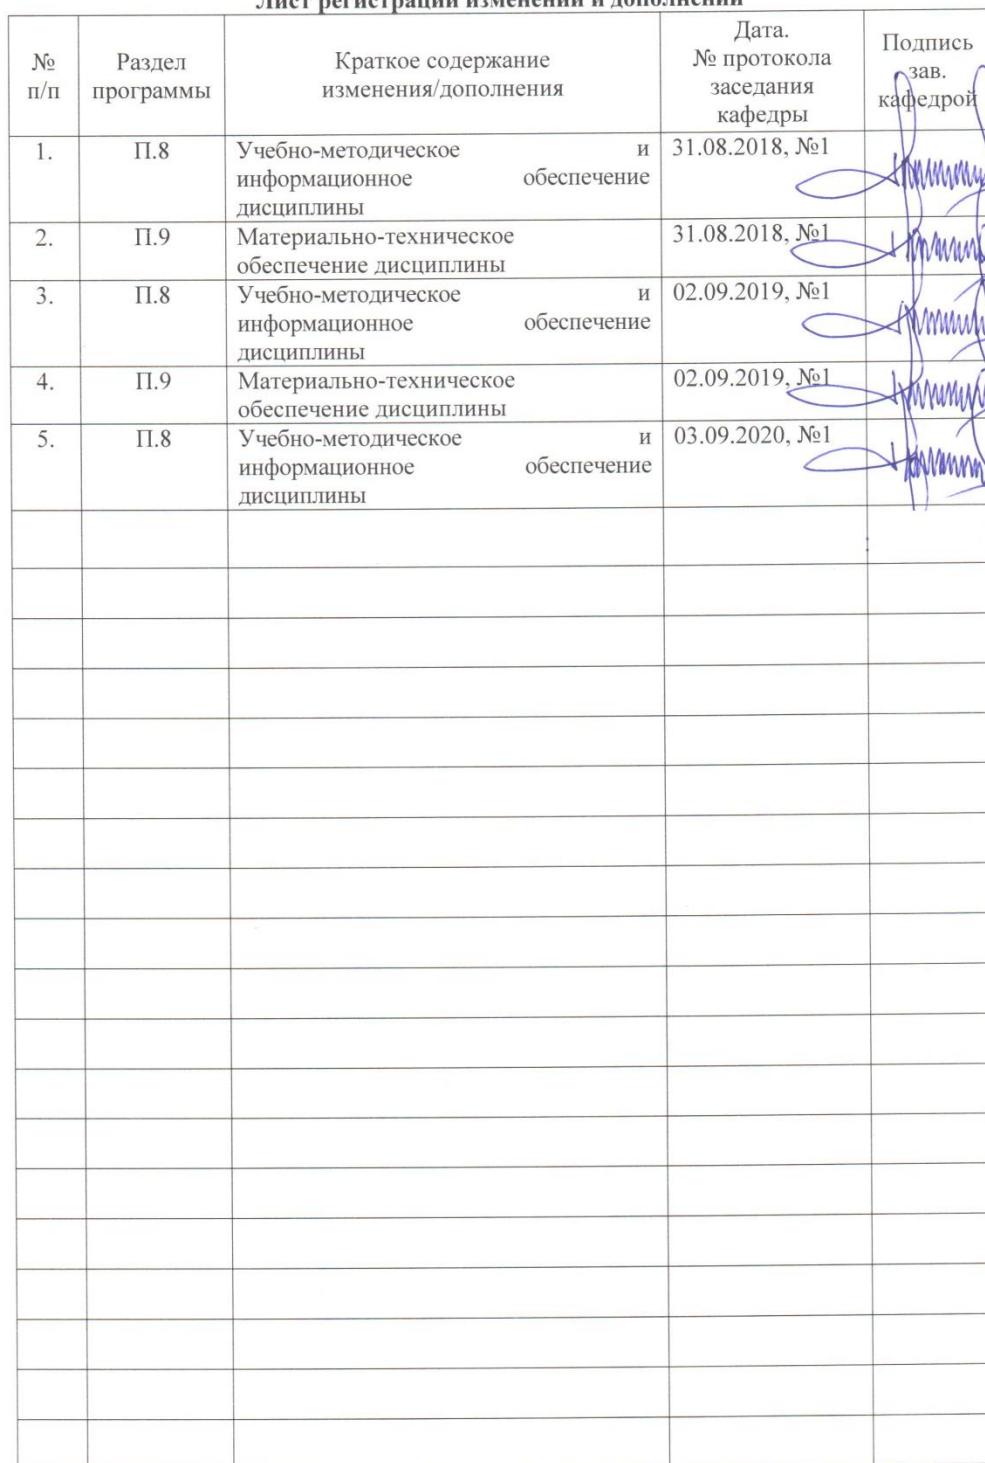 Лист регистрации изменений и дополнений
№
п/п
Раздел
программы
Краткое содержание
изменения/дополнения
Дата.
№ протокола
заседания
кафедры
Подпись
зав.
кафедрой
1.
П.8
Учебно-методическое и
информационное обеспечение
дисциплины
31.08.2018, №1
2.
П.9
Материально-техническое
обеспечение дисциплины
31.08.2018, №1
3.
П.8
Учебно-методическое и
информационное обеспечение
дисциплины
02.09.2019, №1
4.
П.9
Материально-техническое
обеспечение дисциплины
02.09.2019, №1
5.
П.8
Учебно-методическое и
информационное обеспечение
дисциплины
03.09.2020, №1